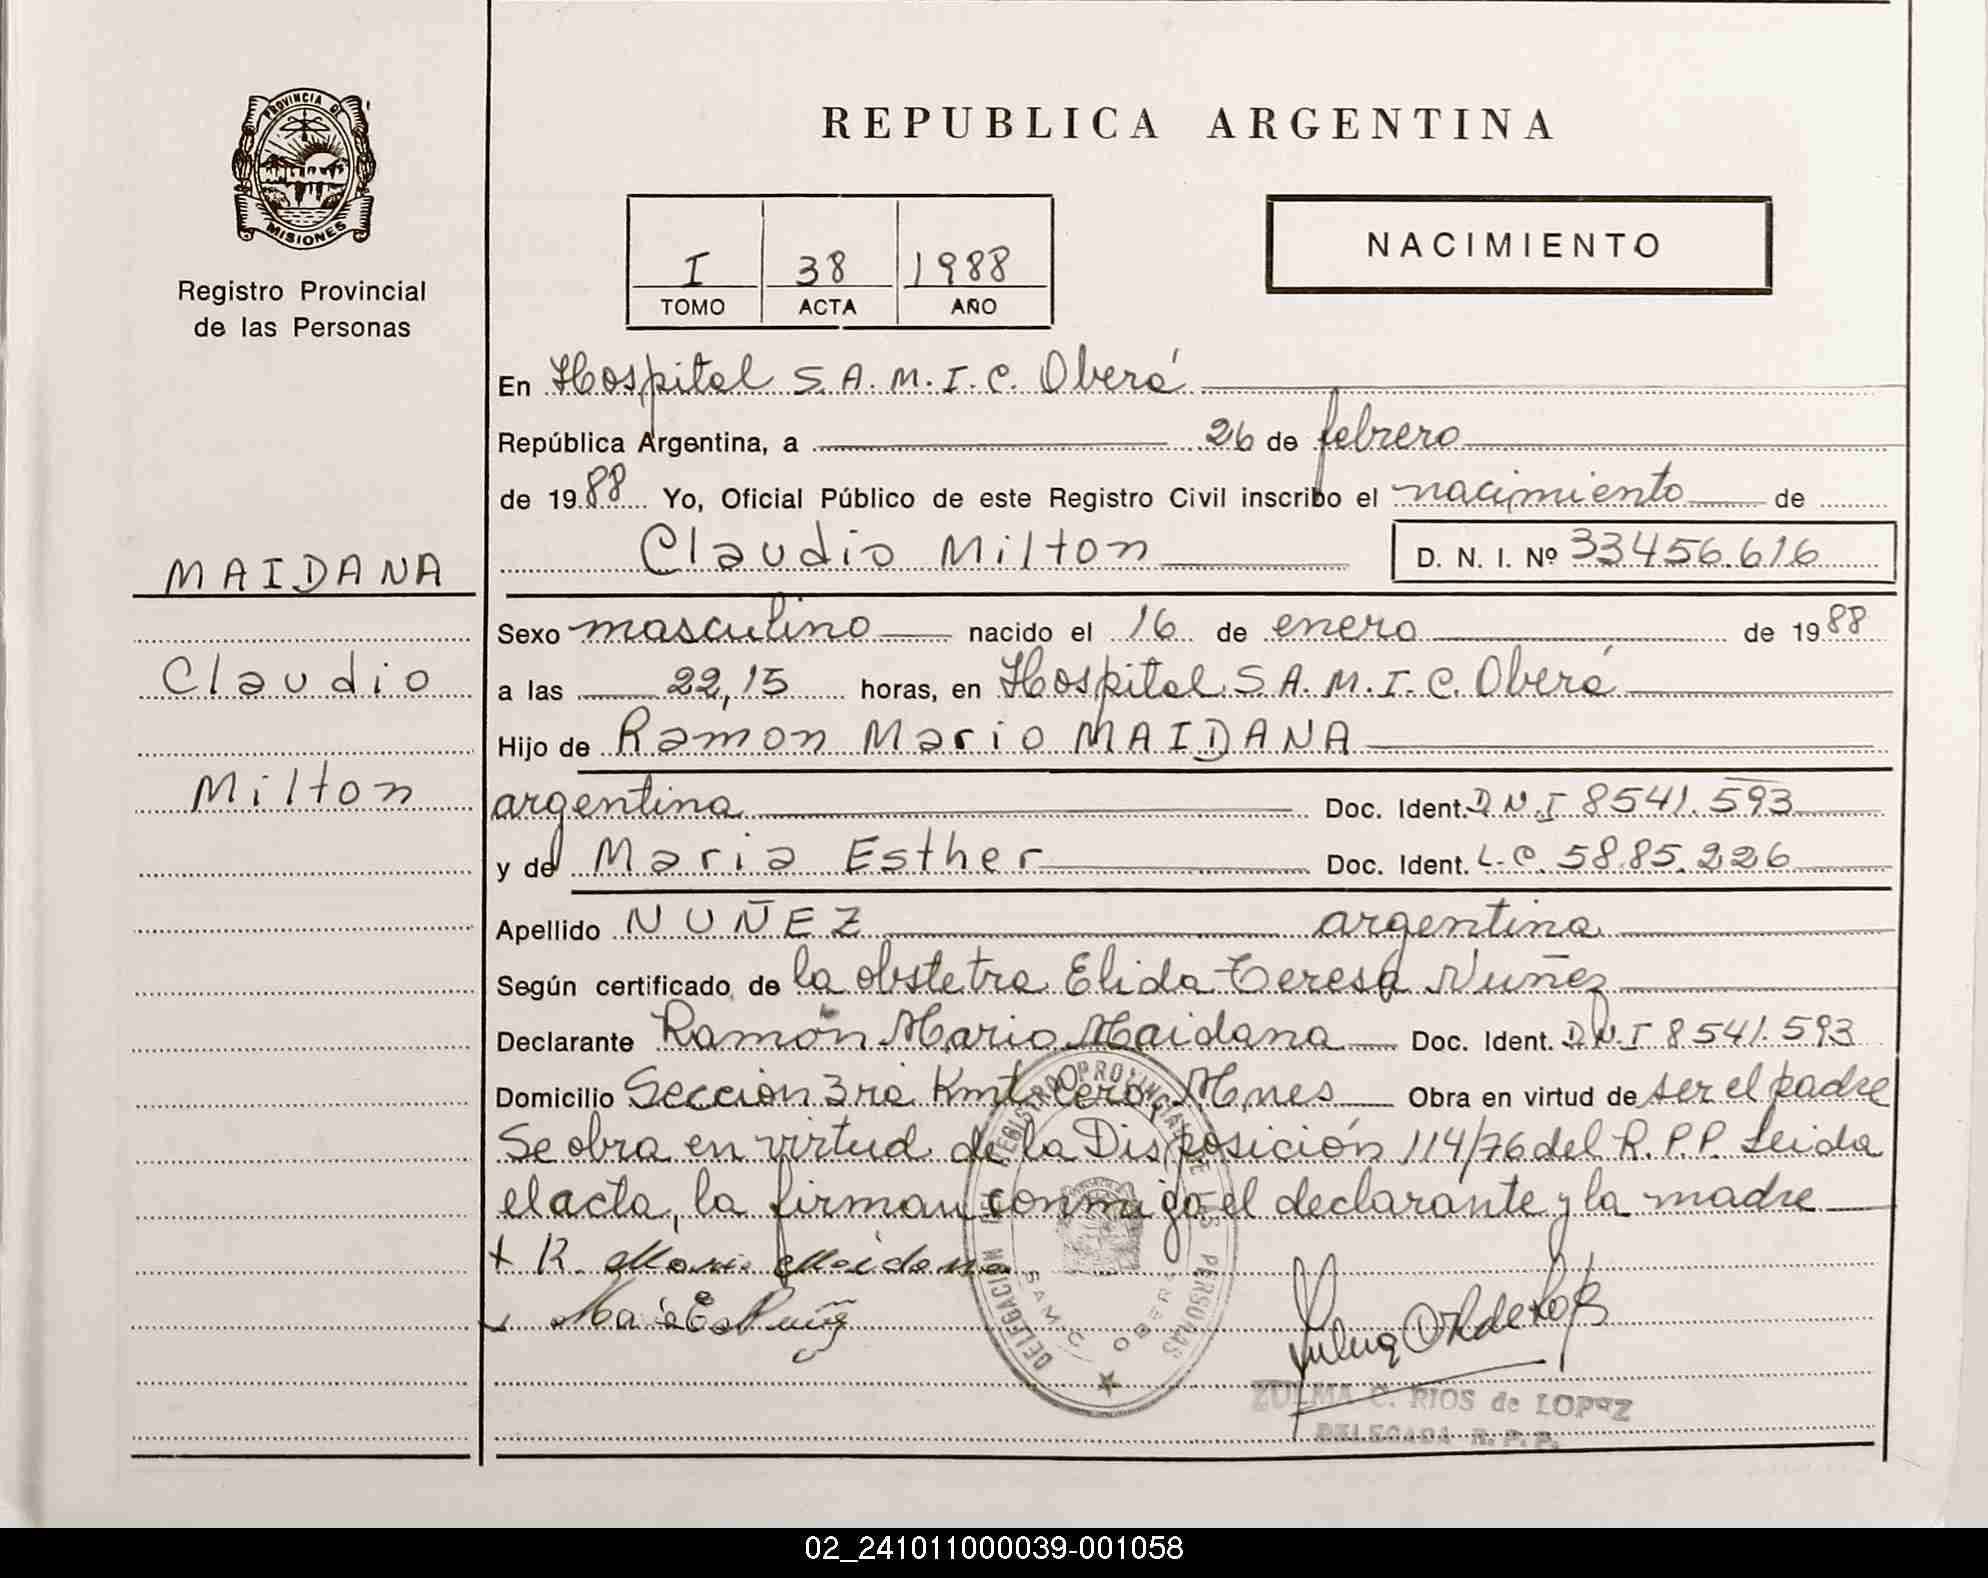 PROVINCIA DE
MISIONES
Registro Provincial
de las Personas
MAIDANA
Claudio
Milton
REPUBLICA ARGENTINA
I 38 1988
TOMO ACTA AÑO
NACIMIENTO
En Hospital S.A.M.I.C. Oberá
República Argentina, a 26 de febrero
de 1988 Yo, Oficial Público de este Registro Civil inscribo el nacimiento de
Claudio Milton D. N. I. Nº 33456.616
Sexo masculino nacido el 16 de enero de 1988
a las 22,15 horas, en Hospital S.A.M.I.C. Oberá
Hijo de Ramon Mario MAIDANA
argentina Doc. Ident. D.N.I 8541.593
y de Maria Esther Doc. Ident. L.C. 58.85.226
Apellido NUÑEZ argentina
Según certificado de la obstetra Elida Teresa Nuñez
Declarante Ramón Mario Maidana Doc. Ident. D.N.I 8541.593
Domicilio Sección 3ra Kmt. cero, Mnes Obra en virtud de ser el padre
Se obra en virtud de la Disposición 114/76 del R.P.P. Leida
el acta, la firman conmigo el declarante y la madre
+ R. Mario Maidana
DELEGACION DEL REGISTRO PROVINCIAL DE LAS PERSONAS
SAMIC OBERA
ZULMA C. RIOS de LOPEZ
DELEGADA R. P. P.
02_241011000039-001058